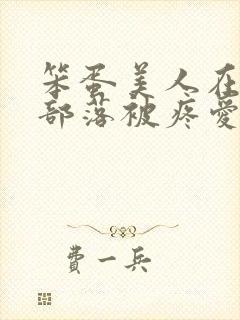 笨蛋美人在
部落被疼愛
費一兵